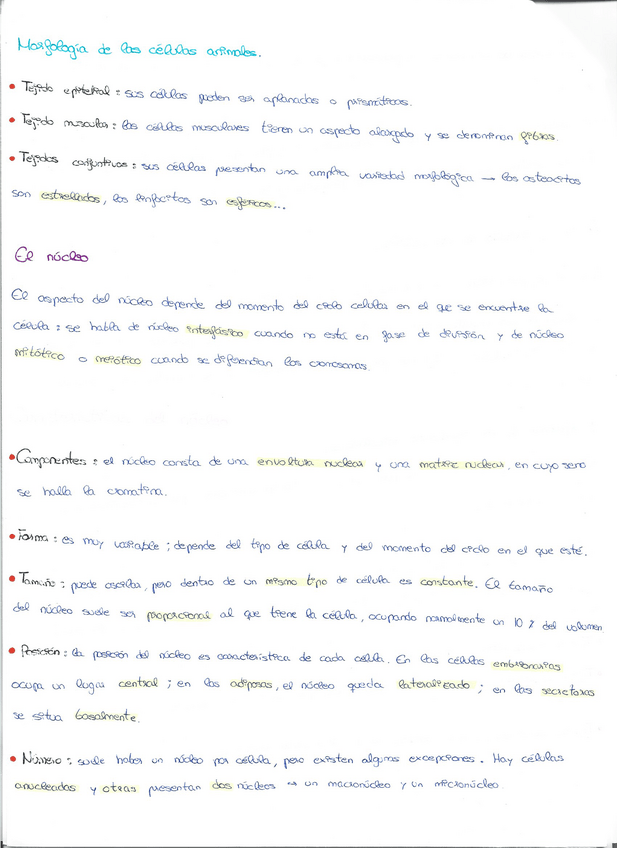 Morfología de las células animales.
• Tejido epitelial: sus células pueden ser aplanadas o prismáticas.
• Tejido muscular: las células musculares tienen un aspecto alargado y se denominan fibras.
• Tejidos conjuntivos: sus células presentan una amplia variedad morfológica → los osteocitos
son estrellados, los linfocitos son esféricos...
El núcleo
El aspecto del núcleo depende del momento del ciclo celular en el que se encuentre la
célula: se habla de núcleo interfásico cuando no está en fase de división y de núcleo
mitótico o meiótico cuando se diferencian los cromosomas.
• Componentes: el núcleo consta de una envoltura nuclear y una matriz nuclear, en cuyo seno
se halla la cromatina.
• Forma: es muy variable; depende del tipo de célula y del momento del ciclo en el que esté.
• Tamaño: puede oscilar, pero dentro de un mismo tipo de célula es constante. El tamaño
del núcleo suele ser proporcional al que tiene la célula, ocupando normalmente un 10 % del volumen
• Posición: la posición del núcleo es característica de cada célula. En las células embrionarias
ocupa un lugar central; en las adiposas, el núcleo queda lateralizado; en las secretoras
se situa basalmente.
• Número: suele haber un núcleo por célula, pero existen algunas excepciones. Hay células
anucleadas y otras presentan dos núcleos → un macronúcleo y un micronúcleo.